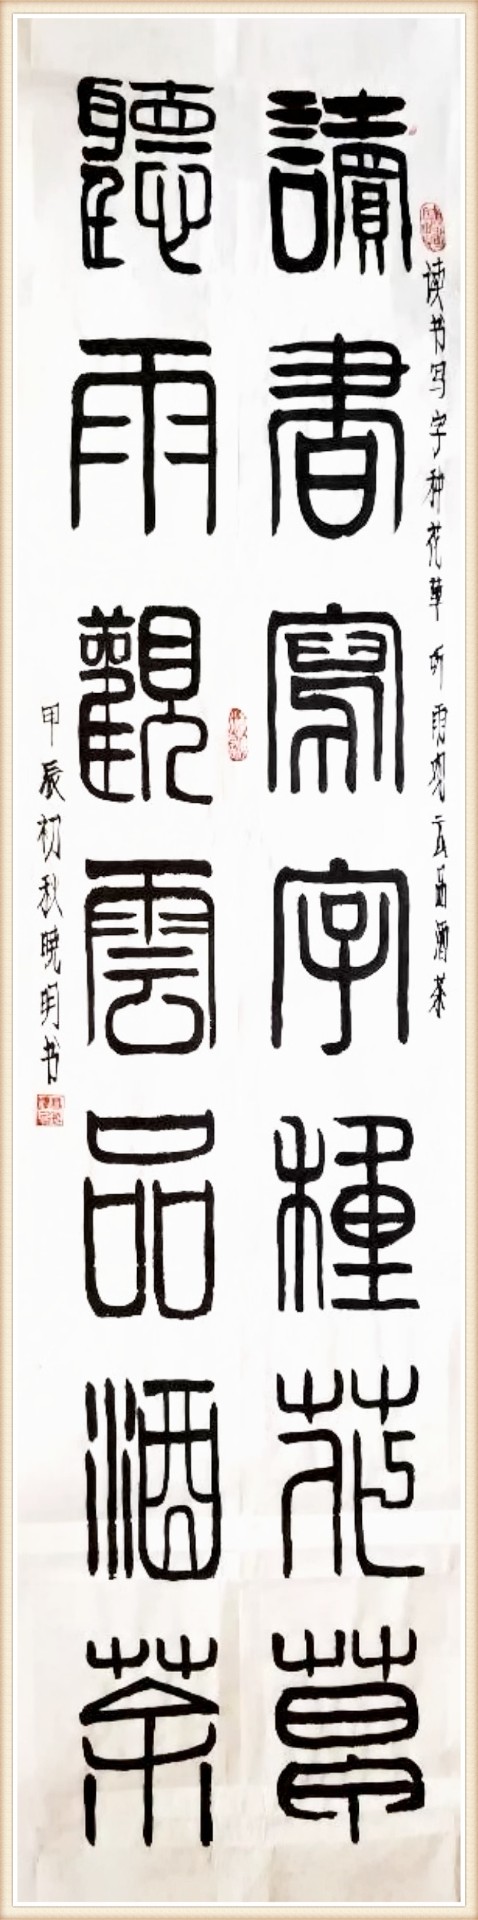 读书写字种花草 听雨观云品酒茶
讀書寫字種花草
聽雨觀雲品酒茶
甲辰初秋晓明书